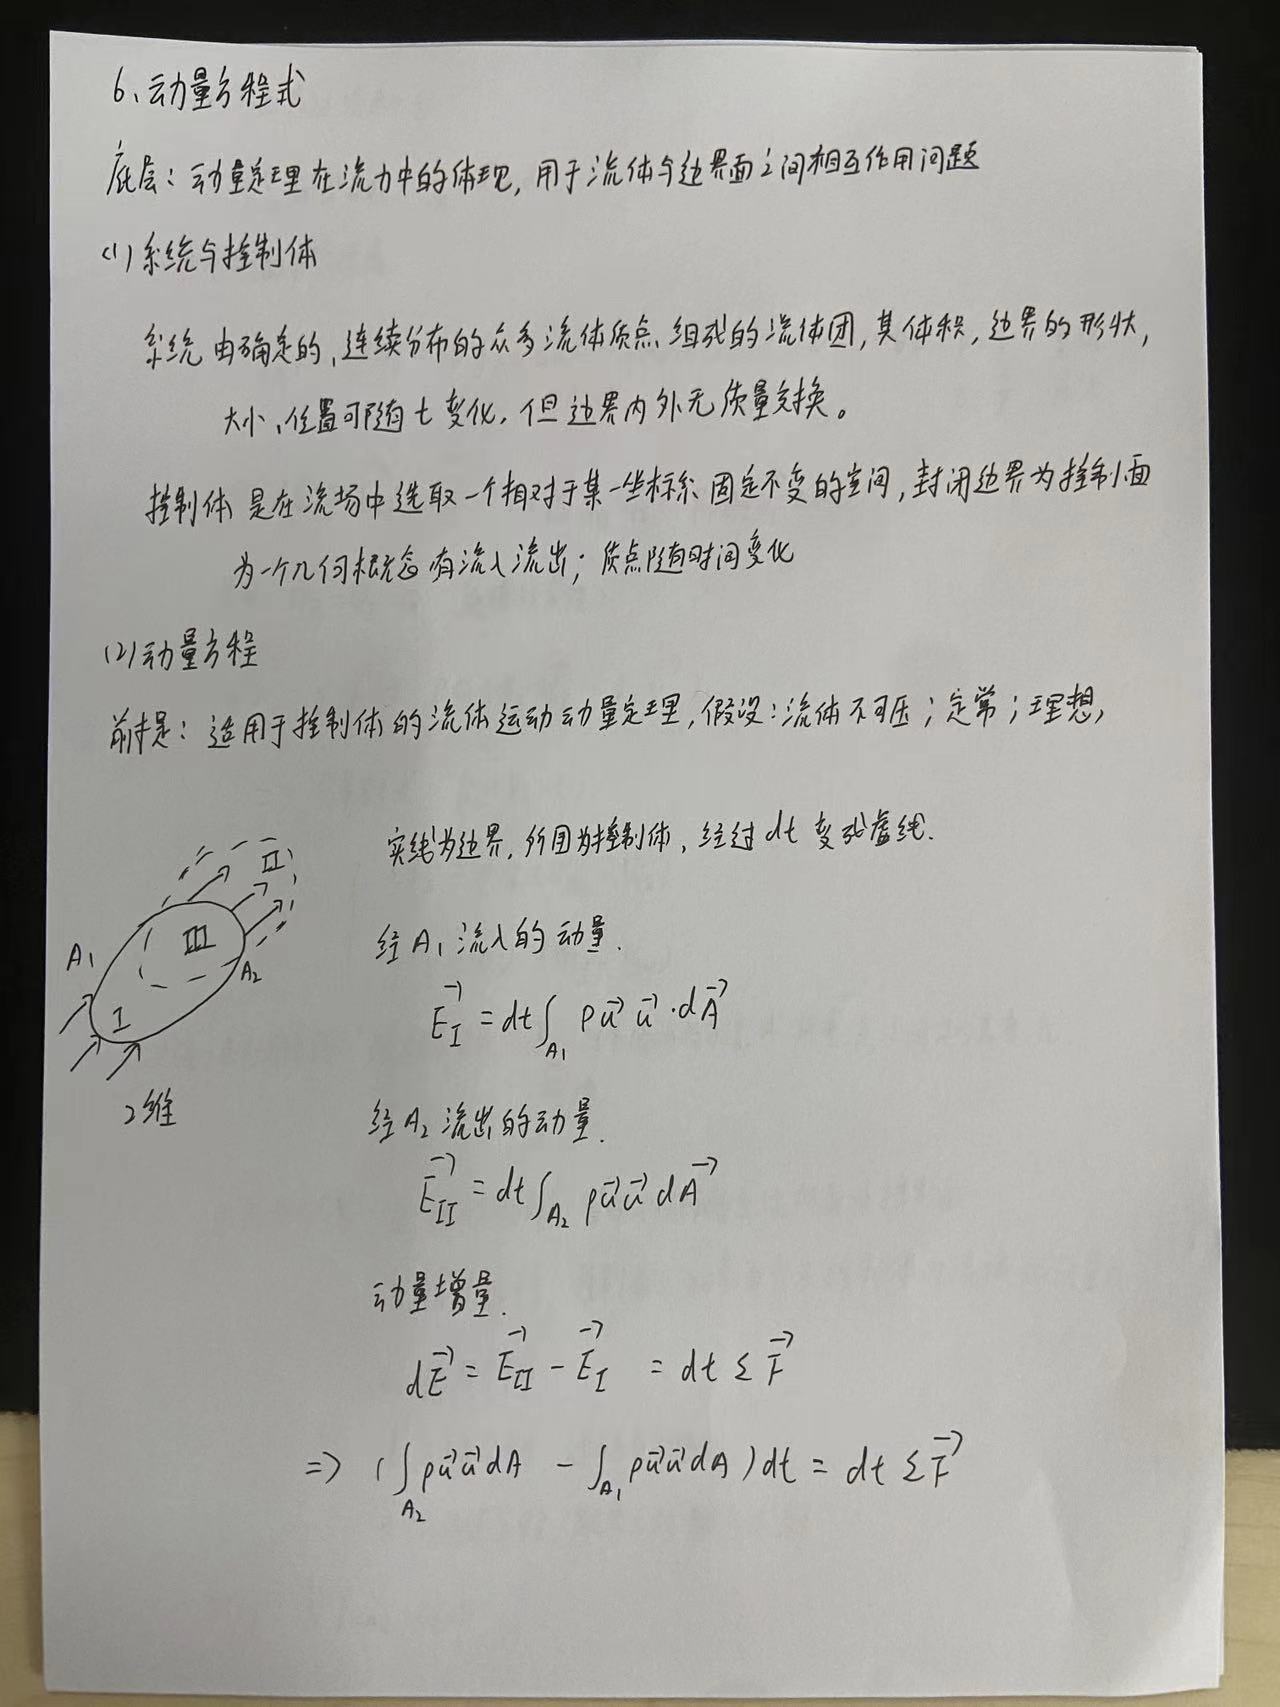 6、动量方程式
底层：动量定理在流力中的体现，用于流体与边界面之间相互作用问题
(1) 系统与控制体
系统 由确定的，连续分布的众多流体质点 组成的流体团，其体积，边界的形状，
大小、位置可随 t 变化，但边界内外无质量交换。
控制体 是在流场中选取一个相对于某一坐标系 固定不变的空间，封闭边界为控制面
为一个几何概念 有流入流出；质点随时间变化
(2) 动量方程
前提：适用于控制体的流体运动动量定理，假设：流体不可压；定常；理想，
实线为边界，所围为控制体，经过 dt 变成虚线.
II
III
A₁
A₂
I
2维
经 A₁ 流入的动量.
E⃗_I = dt∫_{A₁} ρu⃗ u⃗·dA⃗
经 A₂ 流出的动量.
E⃗_II = dt∫_{A₂} ρu⃗u⃗ dA⃗
动量增量.
dE⃗ = E⃗_II − E⃗_I = dt Σ F⃗
⇒ (∫_{A₂} ρu⃗u⃗dA − ∫_{A₁} ρu⃗u⃗dA)dt = dt ΣF⃗